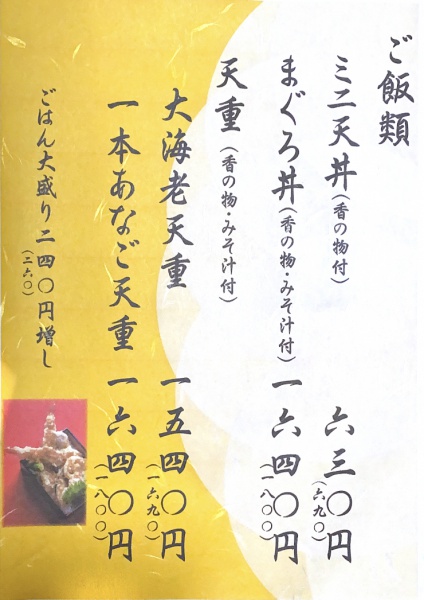 ご飯類
ミニ天丼(香の物付) 六三〇円
(六九〇)
まぐろ丼(香の物・みそ汁付) 一六四〇円
(一八〇〇)
天重(香の物・みそ汁付)
大海老天重 一五四〇円
(一六九〇)
一本あなご天重 一六四〇円
(一八〇〇)
ごはん大盛り二四〇円増し
(二六〇)